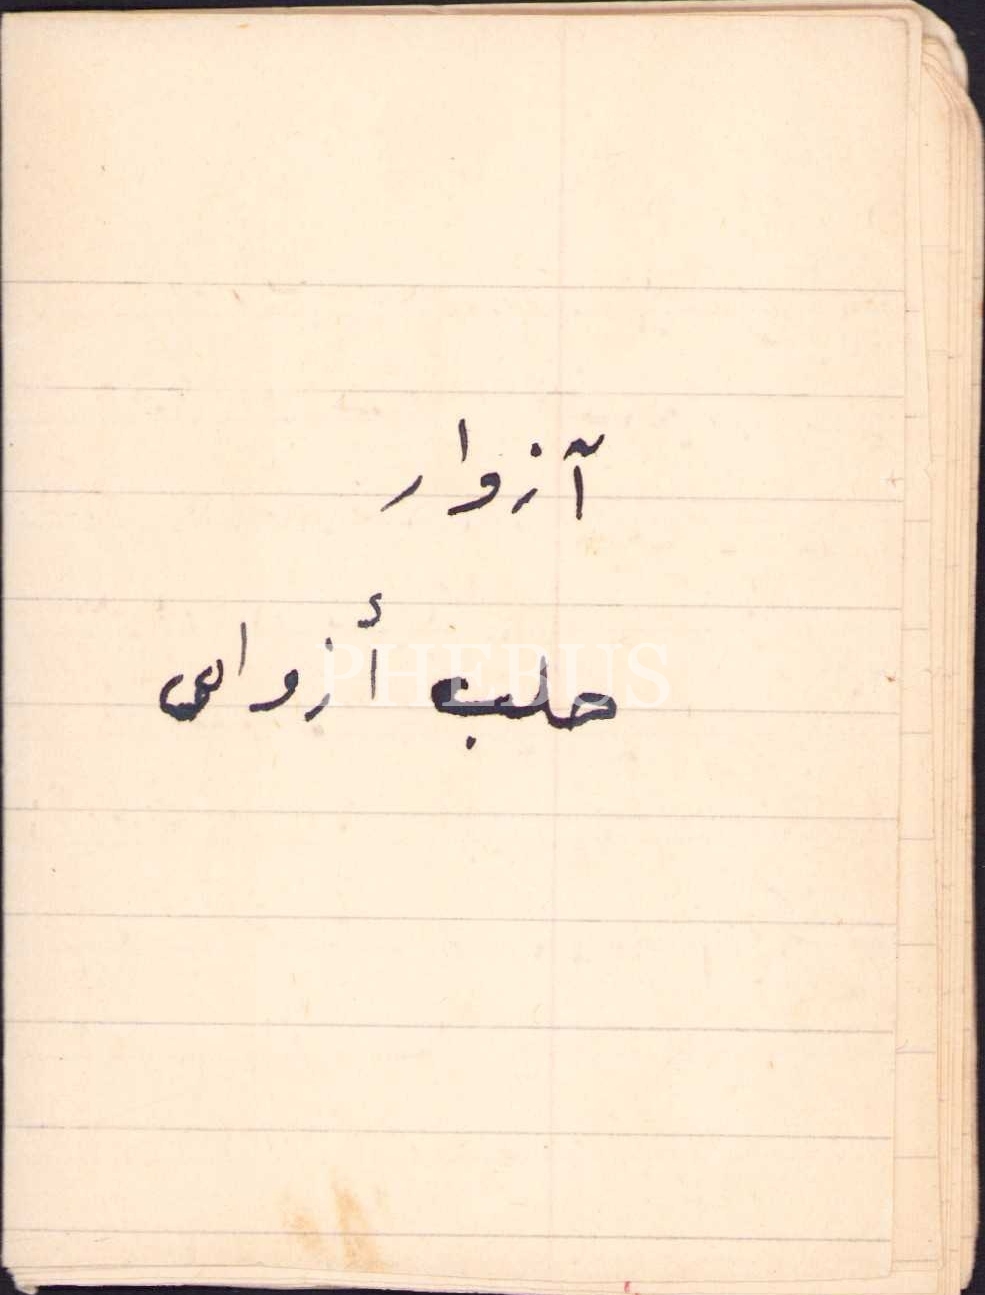 آزوار
حلب أزواى
PHEBUS